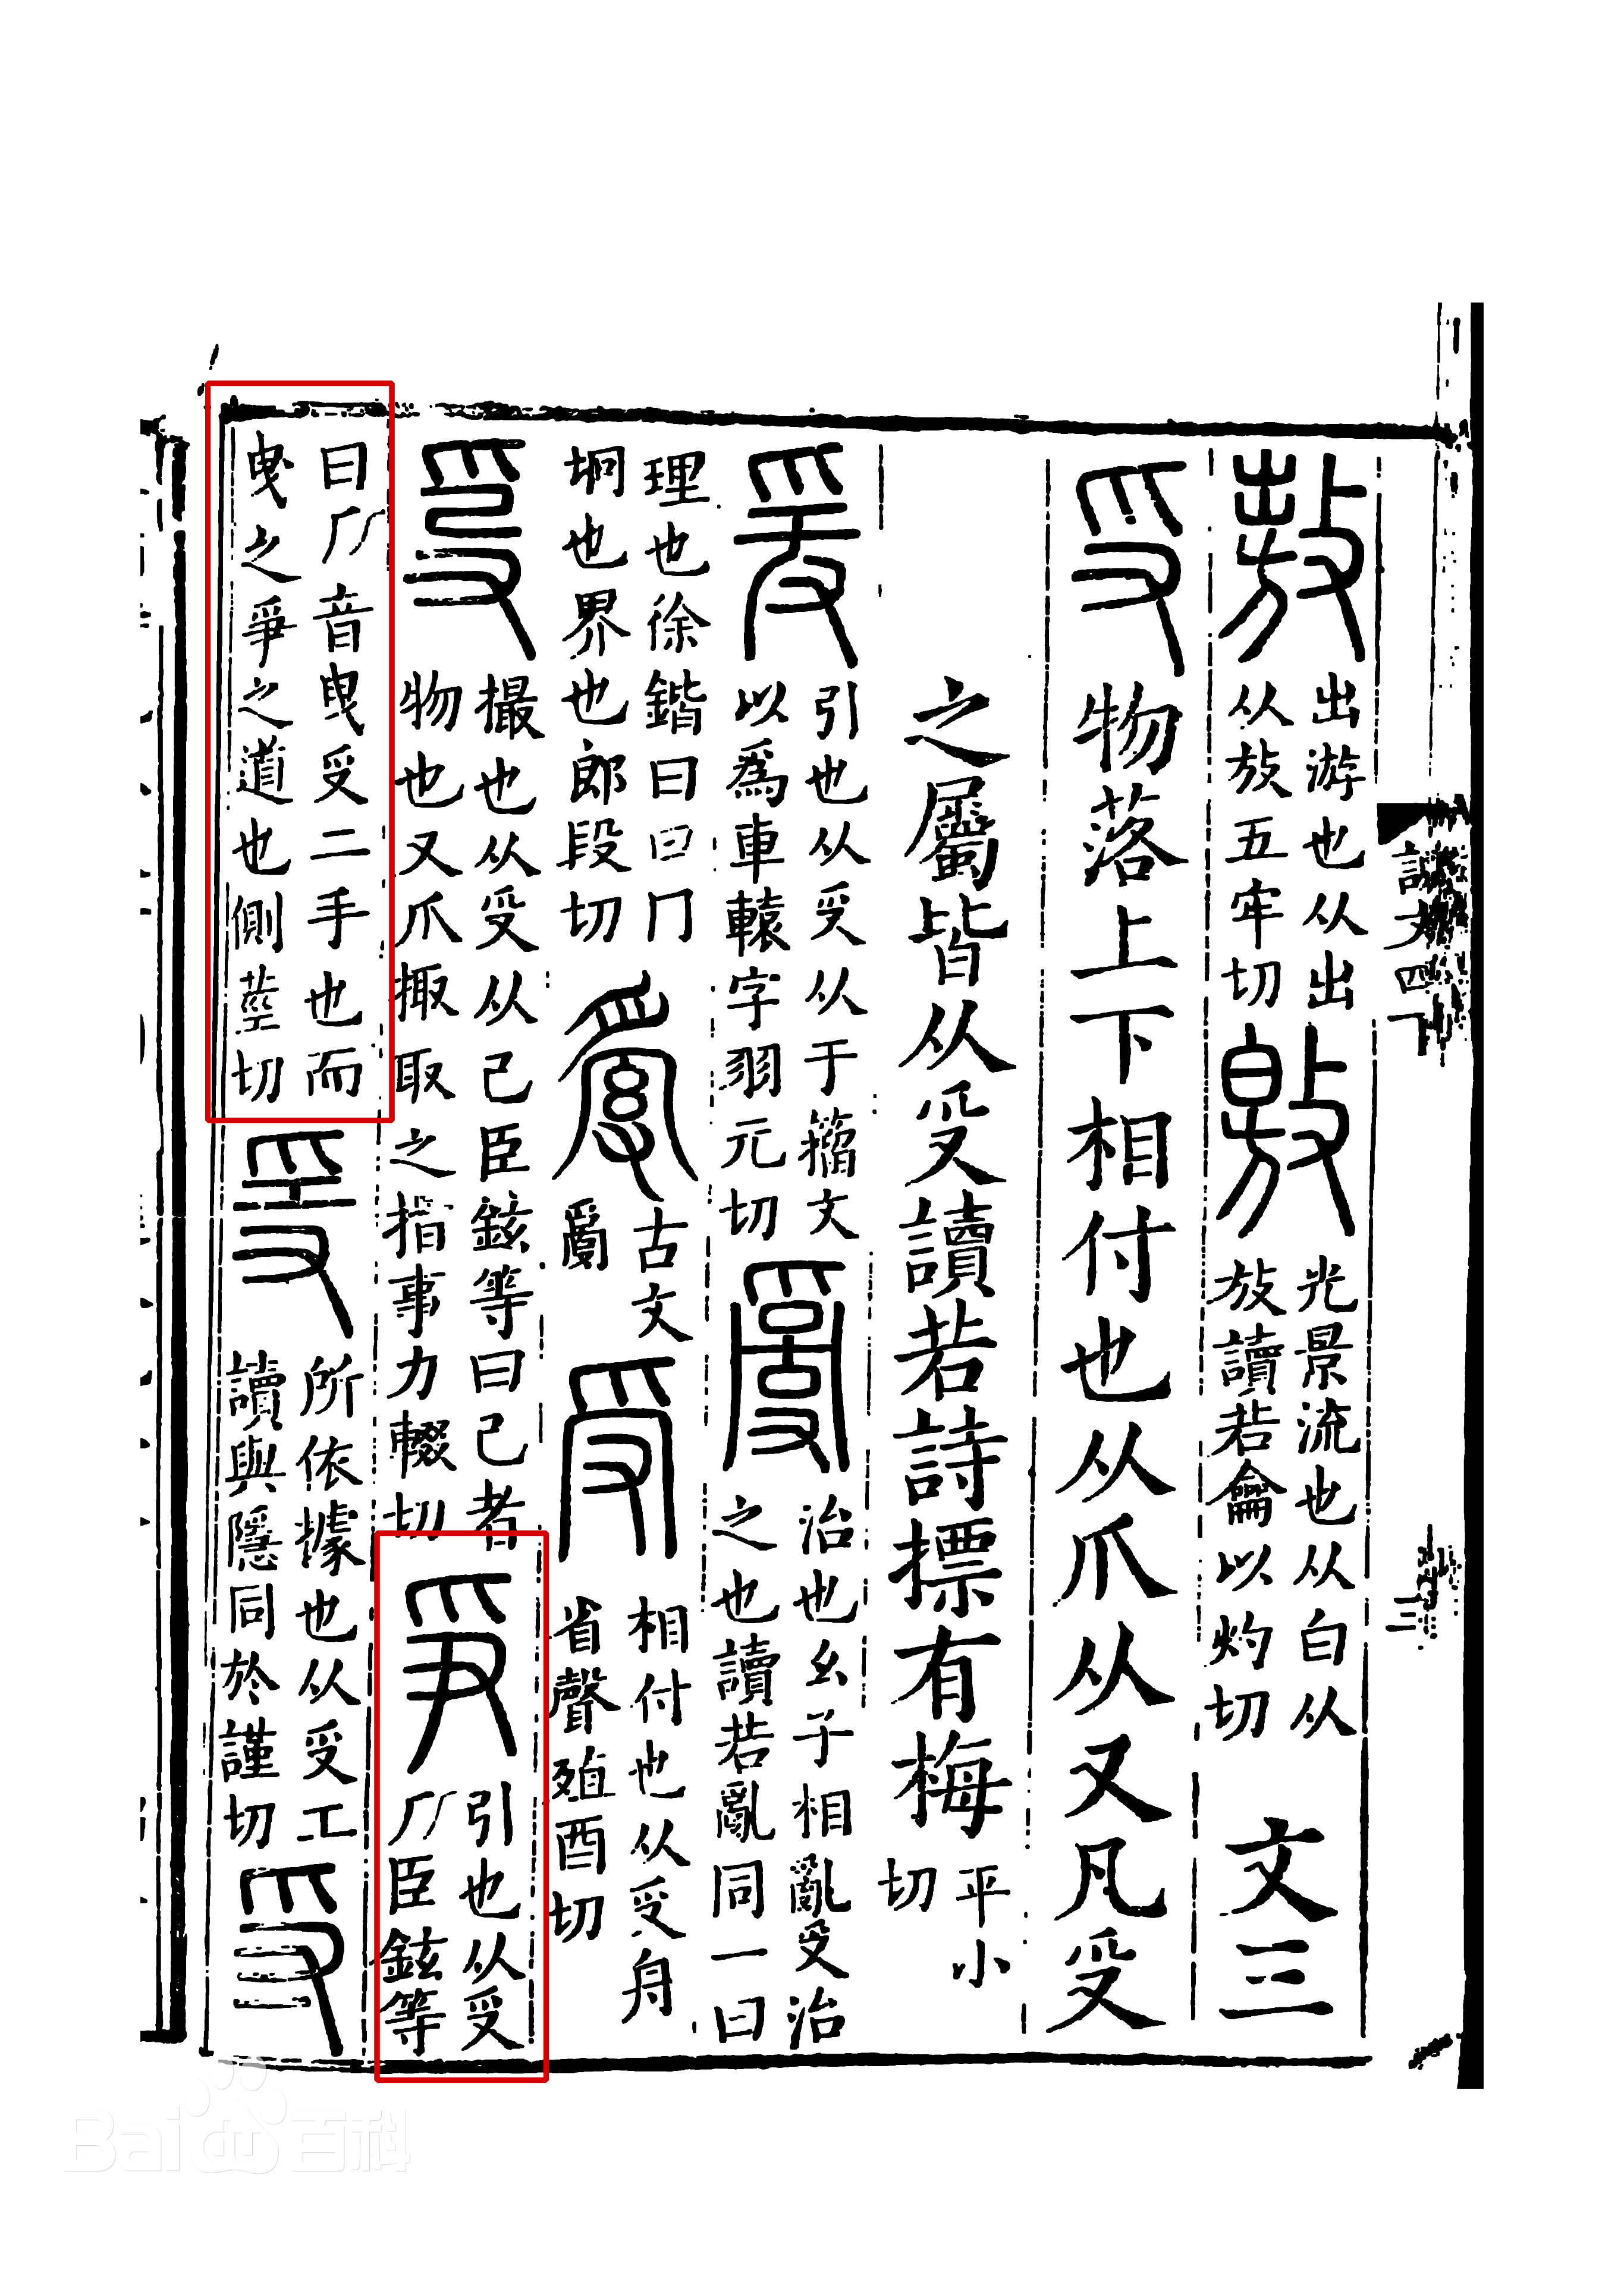 說文四下
三
敖
出游也从出
从放五牢切
敫
光景流也从白从
放讀若龠以灼切
文三
𠬪
物落上下相付也从爪从又凡𠬪
之屬皆从𠬪讀若詩摽有梅
平小
切
爰
引也从𠬪从于籀文
以爲車轅字羽元切
𤔔
治也幺子相亂𠬪治
之也讀若亂同一曰
理也徐鍇曰曰冂
坰也界也郎段切
古文
𤔔
受
相付也从𠬪舟
省聲殖酉切
撮也从𠬪从己臣鉉等曰己者
物也又爪掫取之指事力輟切
爭
引也从𠬪
𠂆臣鉉等
曰𠂆音曳𠬪二手也而
曳之爭之道也側莖切
所依據也从𠬪工
讀與隱同於謹切
寽
Baidu百科